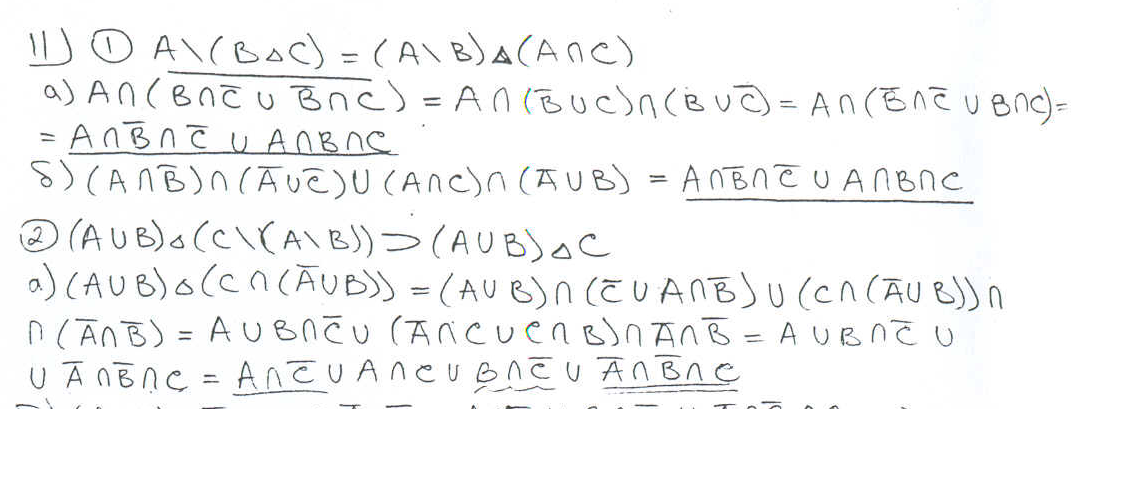 11) ① A\(B△C) = (A\B)△(A∩C)
а) A∩(\overline{B∩C̅ ∪ B̅∩C}) = A∩(B̅∪C)∩(B∪C̅) = A∩(B̅∩C̅ ∪ B∩C)=
= A∩B̅∩C̅ ∪ A∩B∩C
б) (A∩B̅)∩(A̅∪C̅)∪(A∩C)∩(A̅∪B) = A∩B̅∩C̅ ∪ A∩B∩C
② (A∪B)△(C\(A\B)) ⊃ (A∪B)△C
а) (A∪B)△(C∩(A̅∪B)) = (A∪B)∩(C̅∪A∩B̅)∪(C∩(A̅∪B))∩
∩(A̅∩B̅) = A∪B∩C̅∪(A̅∩C∪C∩B)∩A̅∩B̅ = A∪B∩C̅∪
∪A̅∩B̅∩C = A∩C̅∪A∩C∪B∩C̅∪A̅∩B̅∩C